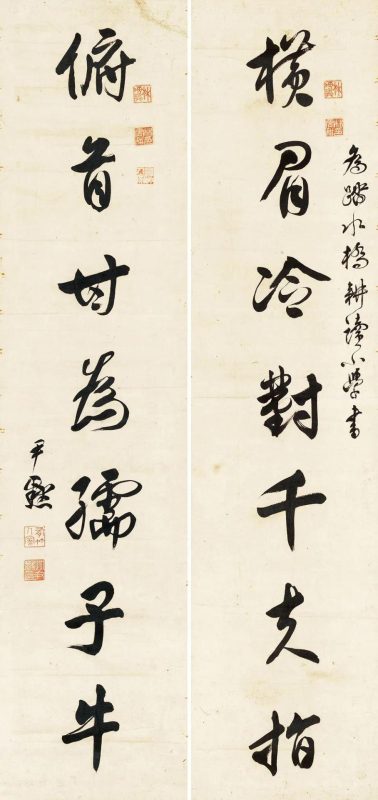 為踏水橋耕讀小學書
橫眉冷對千夫指
俯首甘為孺子牛
尹默